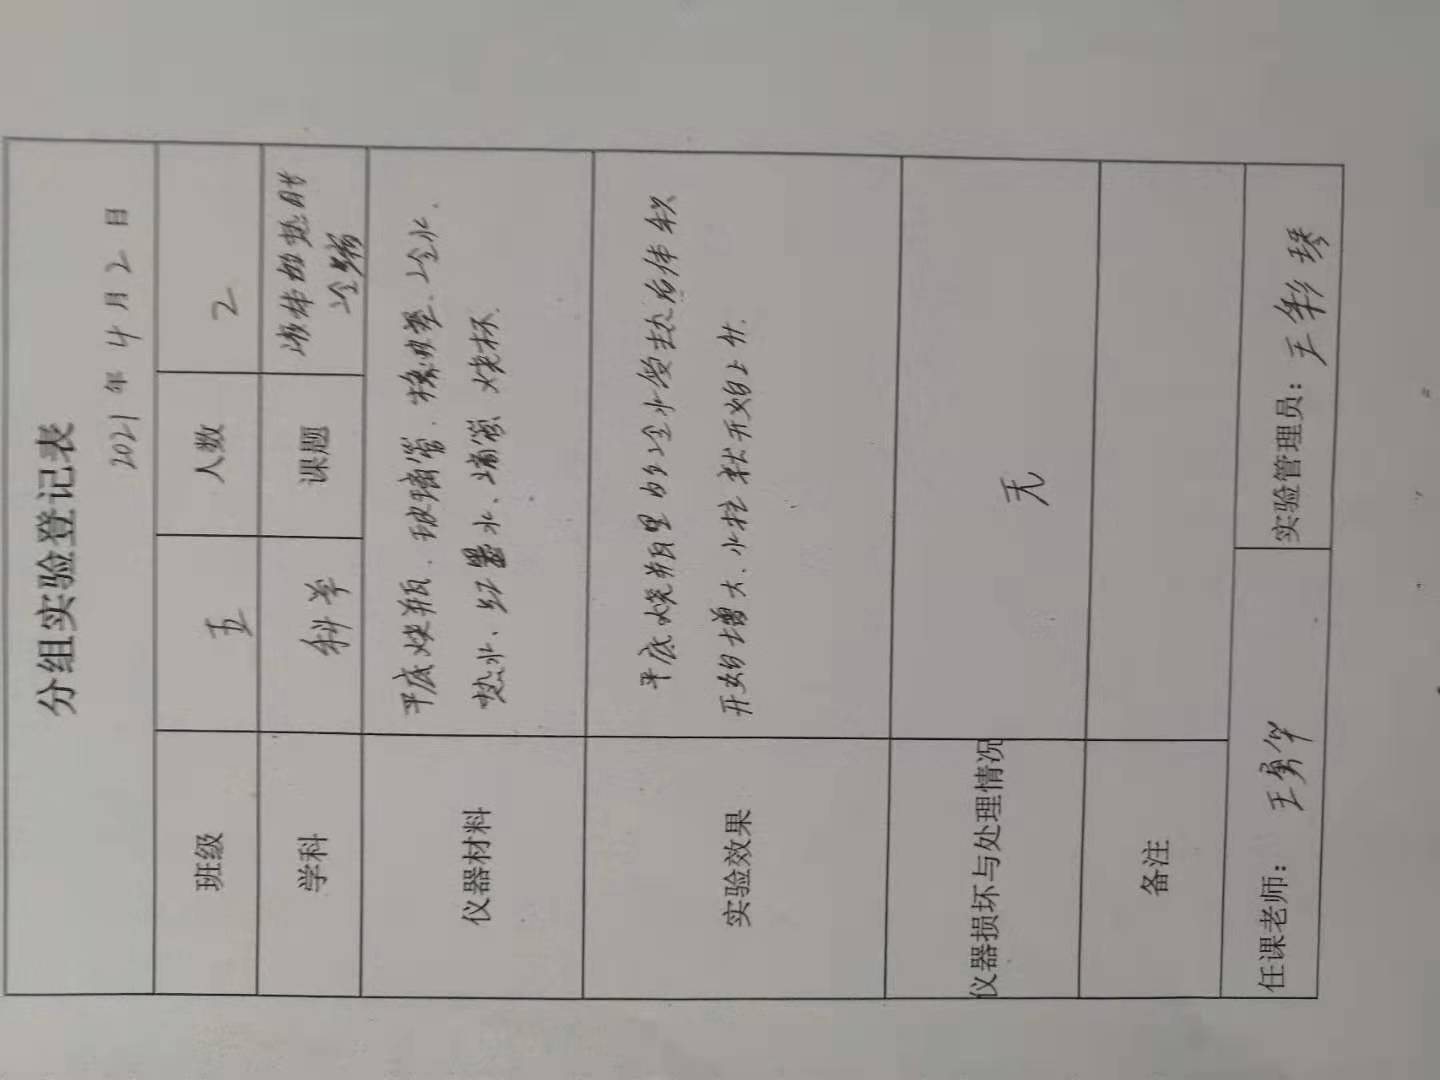 分组实验登记表
2021年4月2日
班级 五 人数 2
学科 科学 课题 液体的热胀
冷缩
仪器材料 平底烧瓶、玻璃管、橡皮塞、冷水、
热水、红墨水、滴管 烧杯
实验效果 平底烧瓶里的冷水受热后体积
开始增大、水柱就开始上升.
仪器损坏与处理情况 无
备注
任课老师： 王勇华 实验管理员： 王彩琴